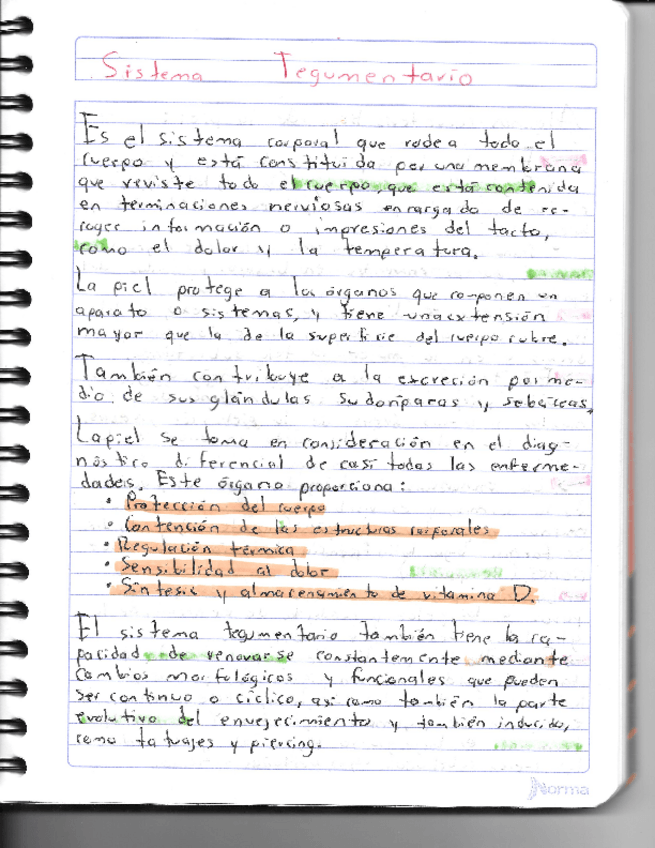 Sistema Tegumentario
Es el sistema corporal que rodea todo el
cuerpo y está constituida por una membrana
que reviste todo el cuerpo, que está contenida
en terminaciones nerviosas encargado de re-
coger información o impresiones del tacto,
como el dolor y la temperatura.
La piel protege a los órganos que componen un
aparato o sistemas, y tiene una extensión
mayor que la de la superficie del cuerpo cubre.
También contribuye a la excreción por me-
dio de sus glándulas sudoríparas y sebáceas.
La piel se toma en consideración en el diag-
nóstico diferencial de casi todas las enferme-
dades. Este órgano proporciona:
• Protección del cuerpo
• Contención de las estructuras corporales
• Regulación térmica
• Sensibilidad al dolor
• Síntesis y almacenamiento de vitamina D.
El sistema tegumentario también tiene la ca-
pacidad de renovarse constantemente mediante
cambios morfológicos y funcionales que pueden
ser continuo o cíclico, así como también la parte
evolutivo del envejecimiento y también inducido,
como tatuajes y piercing.
Norma